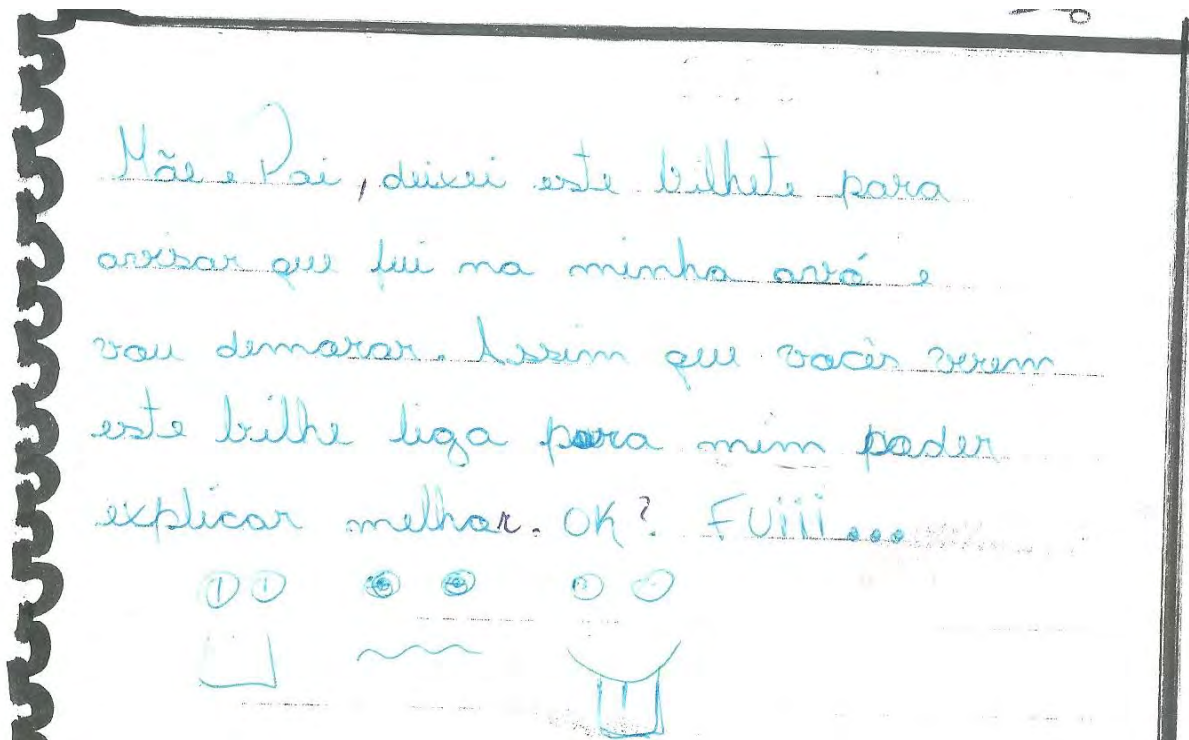 Mãe e Pai, deixei este bilhete para
avisar que fui na minha avó e
vou demorar. Assim que vocês verem
este bilhe liga para mim poder
explicar melhor. OK? FUiii...